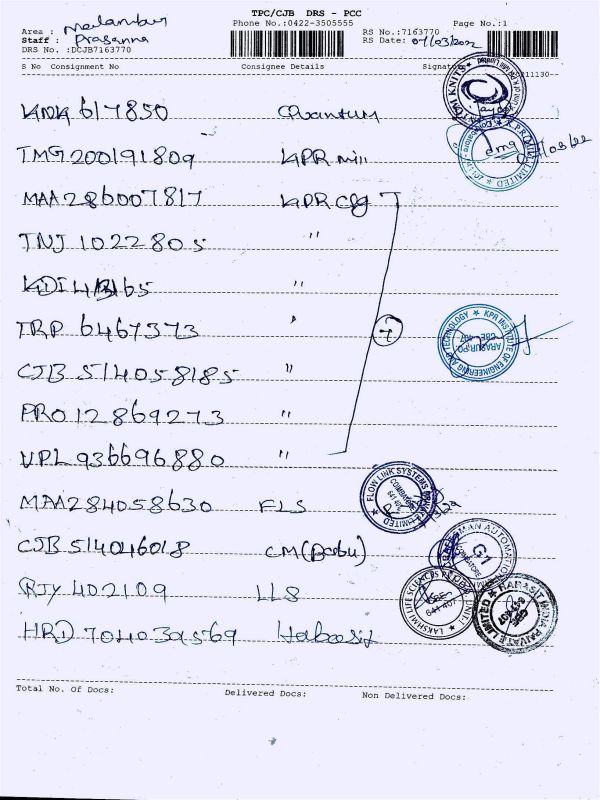 TPC/CJB DRS - PCC
Phone No.:0422-3505555
Page No.:1
Area :
Staff : Prasanna
DRS No. :DCJB7163770
RS No.:7163770
RS Date:
S No Consignment No Consignee Details Signature
617850 Quantum
TMG 200191809 KPR mill
MAA 286007817 KPR clg
TNJ 1022805 "
KDI "
TRP 6467373 "
CJB 514058185 "
PRO 12869273 "
VPL 936696880 "
7
MAA284058630 FLS
CJB 514046018 CM (Babu)
RJY 402109 LLS
HRD 704039569 Habasit
KPR MILL LIMITED
KPR INSTITUTE OF ENGINEERING AND TECHNOLOGY
ARASUR PO. CBE-407
FLOW LINK SYSTEMS PRIVATE LIMITED
COIMBATORE 641 407
G1
LAKSHMI LIFE SCIENCES
CBE 641 407
HABASIT INDIA PRIVATE LIMITED
Total No. Of Docs: Delivered Docs: Non Delivered Docs: